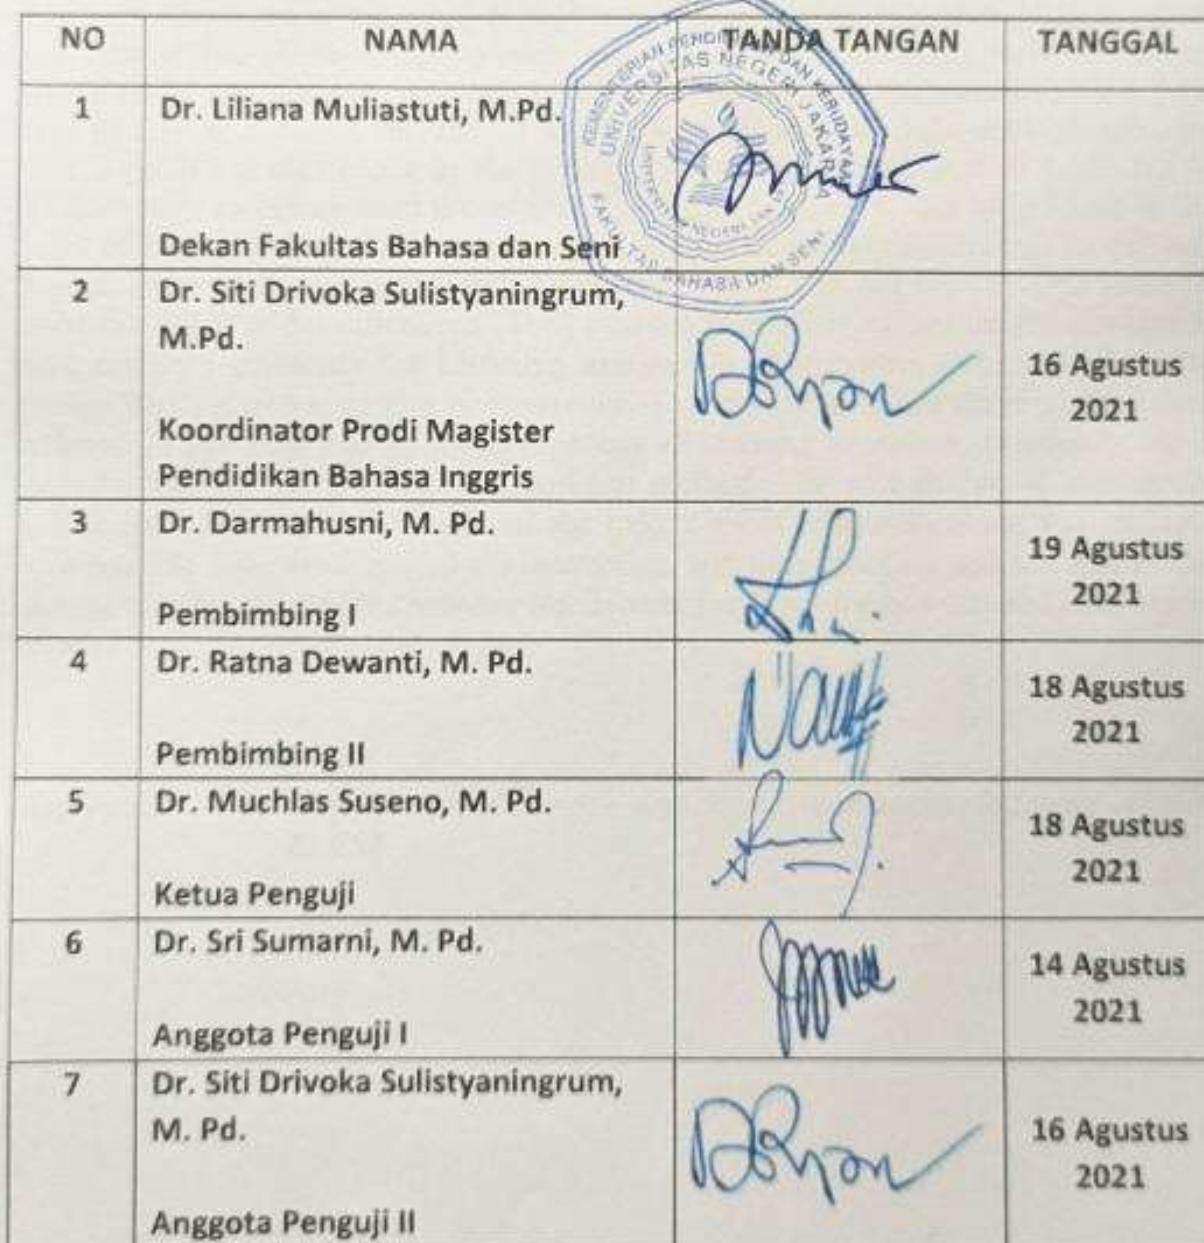 NO NAMA TANDA TANGAN TANGGAL
1 Dr. Liliana Muliastuti, M.Pd.
Dekan Fakultas Bahasa dan Seni
KEMENTERIAN PENDIDIKAN DAN KEBUDAYAAN
UNIVERSITAS NEGERI JAKARTA
FAKULTAS BAHASA DAN SENI
2 Dr. Siti Drivoka Sulistyaningrum,
M.Pd.
Koordinator Prodi Magister
Pendidikan Bahasa Inggris
16 Agustus
2021
3 Dr. Darmahusni, M. Pd.
Pembimbing I
19 Agustus
2021
4 Dr. Ratna Dewanti, M. Pd.
Pembimbing II
18 Agustus
2021
5 Dr. Muchlas Suseno, M. Pd.
Ketua Penguji
18 Agustus
2021
6 Dr. Sri Sumarni, M. Pd.
Anggota Penguji I
14 Agustus
2021
7 Dr. Siti Drivoka Sulistyaningrum,
M. Pd.
Anggota Penguji II
16 Agustus
2021